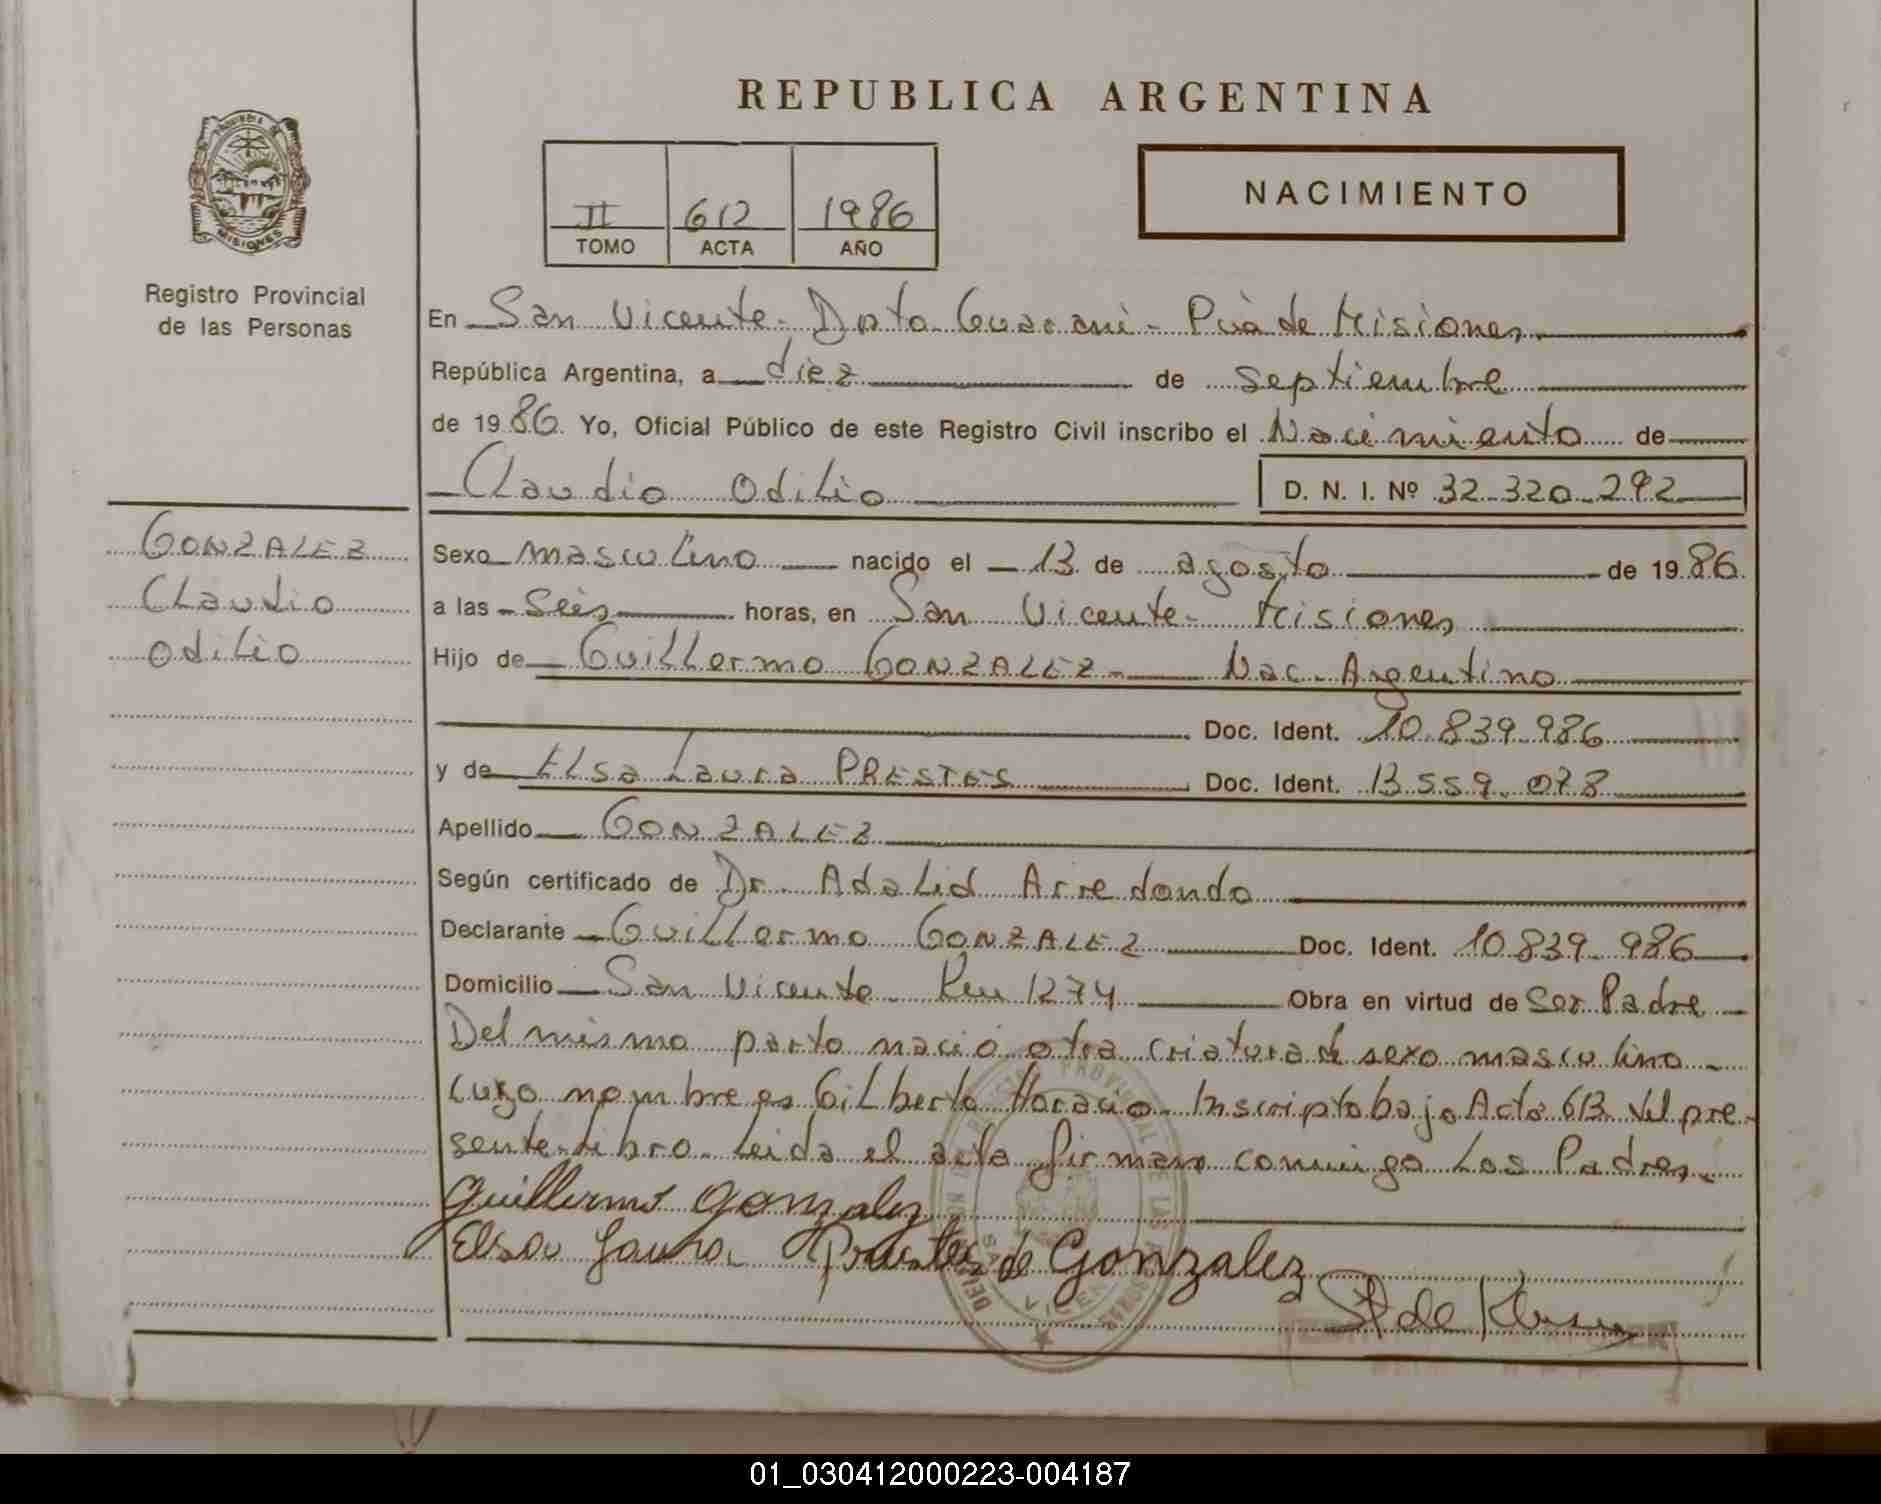 REPUBLICA ARGENTINA
PROVINCIA DE
MISIONES
Registro Provincial
de las Personas
II 612 1986
TOMO ACTA AÑO
NACIMIENTO
En San Vicente - Dpto Guarani - Pcia de Misiones
República Argentina, a diez de septiembre
de 1986. Yo, Oficial Público de este Registro Civil inscribo el Nacimiento de
Claudio Odilio D. N. I. Nº 32.320.292
GONZALEZ
Claudio
Odilio
Sexo masculino nacido el 13 de agosto de 1986
a las Seis horas, en San Vicente - Misiones
Hijo de Guillermo GONZALEZ - Nac. Argentino
Doc. Ident. 10.839.986
y de Elsa Laura PRESTES Doc. Ident. 13.559.078
Apellido GONZALEZ
Según certificado de Dr. Adalid Arredondo
Declarante Guillermo GONZALEZ Doc. Ident. 10.839.986
Domicilio San Vicente - Km 1274 Obra en virtud de Ser Padre
Del mismo parto nació otra criatura de sexo masculino
cuyo nombre es Gilberto Horacio - Inscripto bajo Acta 613 del pre-
sente libro. Leida el acta firman conmigo Los Padres.
Guillermo Gonzalez
Elsa Laura Prestes de Gonzalez
01_030412000223-004187